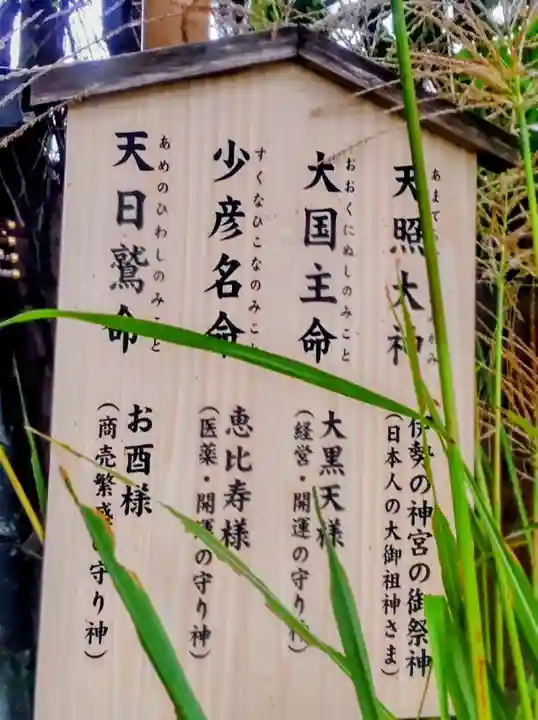 天照大神
あまて
み
伊勢の神宮の御祭神
(日本人の大御祖神さま)
大国主命
おおくにぬしのみこと
大黒天様
(経営・開運の守り神
少彦名命
すくなひこなのみこ
恵比寿様
(医薬・開運の守り神)
天日鷲命
あめのひわしのみこと
お酉様
(商売繁盛 守り神)